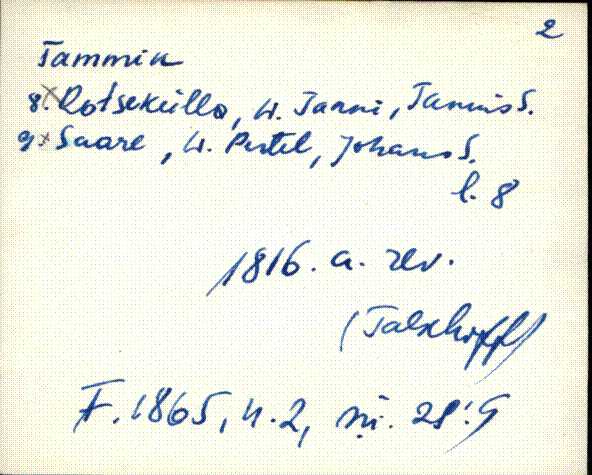 2
Tammik
8. Rotseküllo, W. Janni, Tannis S.
9. Saare, W. Pertel, Johans S.
l. 8
1816. a. rev.
(Talkhoff)
F. 1865, n. 2, nr. 28:9